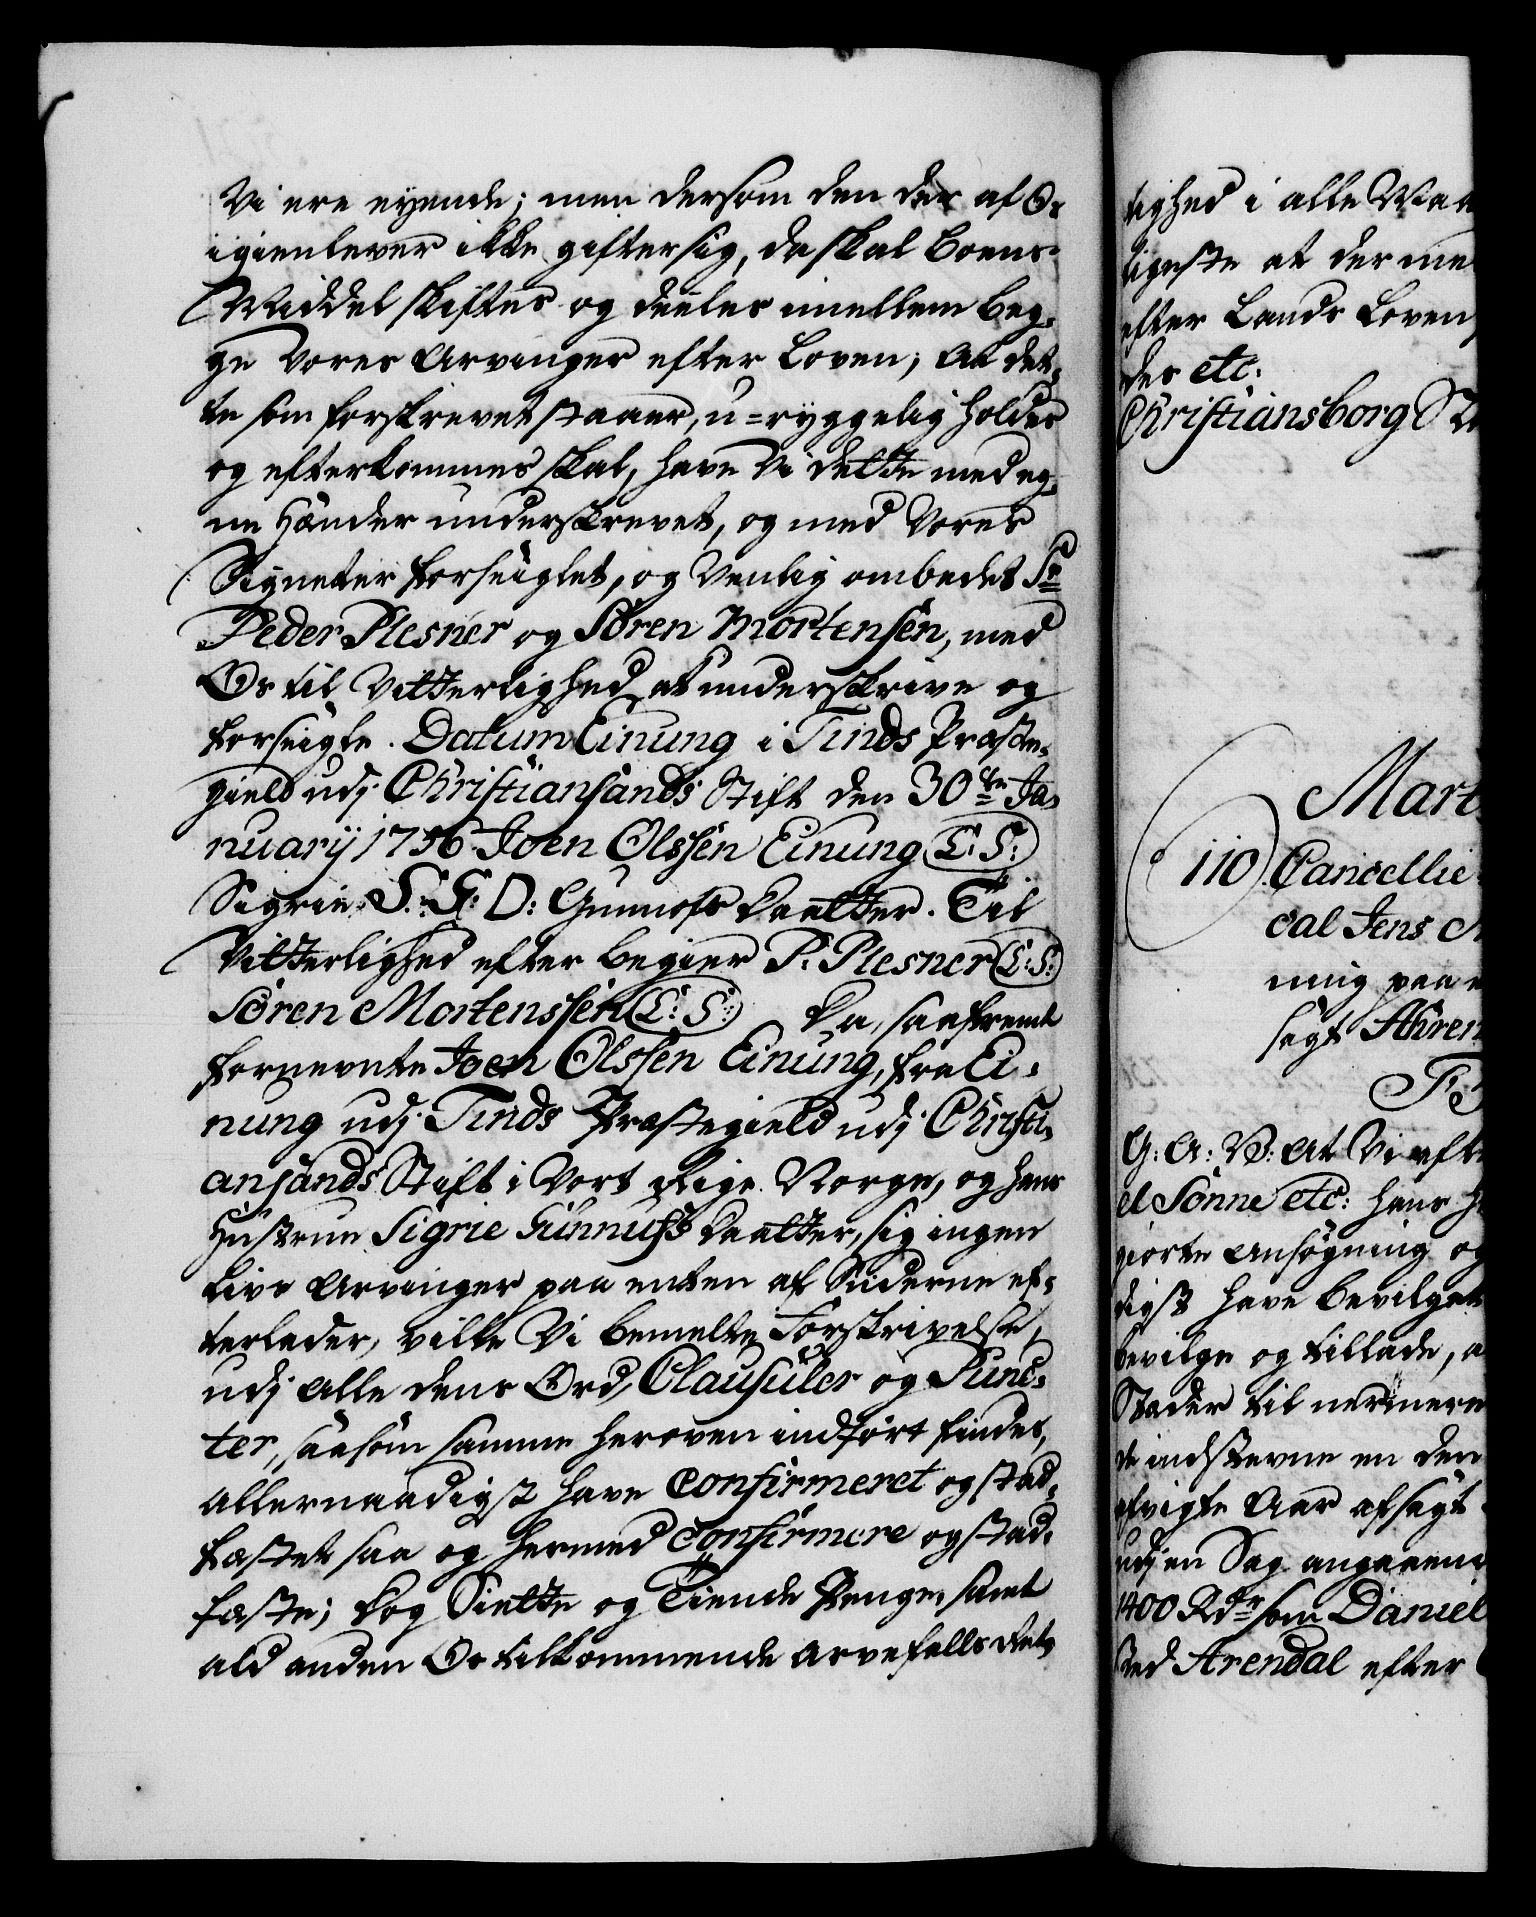 Vi ere eyende; men dersom den der af Os
igienlever ikke gifter sig, da skal Boens
Middel skiftes og deeles imellem Beg-
ge Vores Arvinger efter Loven; At det-
te som forskrevet staaer, u=ryggelig holdes
og efterkommes skal, have Vi dette med eg-
ne Hænder underskrevet, og med Vores
Signeter forseiglet, og Venlig ombedet Sr
Peder Plesner og Søren Mortensen, med
Os til Vitterlighed at underskrive og
forseigle. Datum Einung i Tinds Præste-
gield udj Christiansands Stift den 30te Ja-
nuary 1736. Joen Olssen Einung (L: S:)
Sigrie S. G: D: Gunnofs Daatter. Til
Vitterlighed efter Begier P: Plesner (L: S:)
Søren Mortenssen (L: S:) Da, saafremt
fornevnte Joen Olssen Einung, fra Ei-
nung udj Tinds Præstegield udj Christi-
ansands Stift i Vort Rige Norge, og hans
Hustrue Sigrie Gunnufs Daatter, sig ingen
Livs Arvinger paa enten af Siiderne ef-
terlader, ville Vi bemelte Forskrivelse,
udj alle dens Ord, Clausuler og Punc-
ter, saasom samme heroven indført findes,
allernaadigst have Confirmeret og stad-
fæstet saa og hermed Confirmere og stad-
fæste; Dog Siette og Tiende Penge, samt
ald anden Os tilkommende Arvefalds Ret
tighed i alle Maa
ligeste at derme
efter Lands Loven
des etc:
Christiansborg
Mart
110. Cancellie
dal Jens
ning paa
sagt Ahren
G: A: V: At Vi eft
el Sønne etc: hans
giorte Ansøgning og
digst have bevilget
bevilge og tillade, a
Stæder til nermere
de indstevne en den
afvigte Aar afsagt
udj en Sag angaaend
1400 Rdr som Daniel
sted Arendal efter